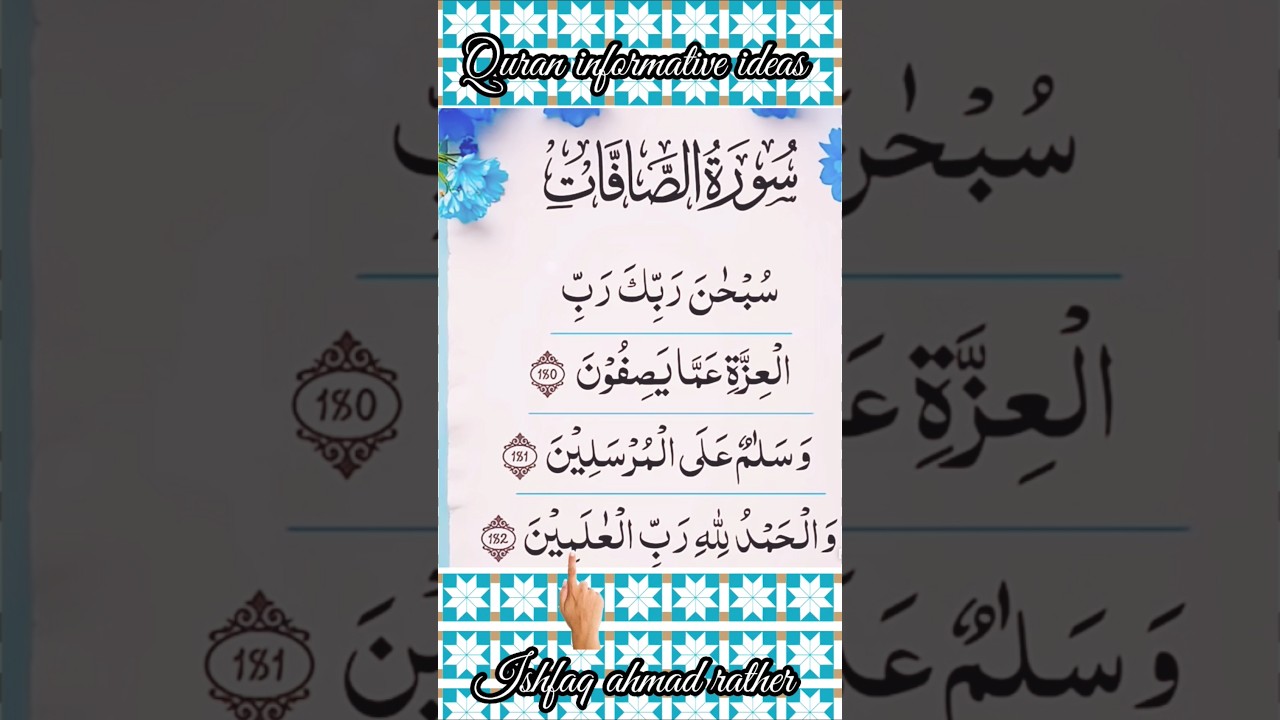 Quran informative ideas
سُوْرَةُ الصَّافَّاتِ
سُبْحٰنَ رَبِّكَ رَبِّ
الْعِزَّةِ عَمَّا يَصِفُوْنَ 180
وَسَلٰمٌ عَلَى الْمُرْسَلِيْنَ 181
وَالْحَمْدُ لِلّٰهِ رَبِّ الْعٰلَمِيْنَ 182
Ishfaq ahmad rather